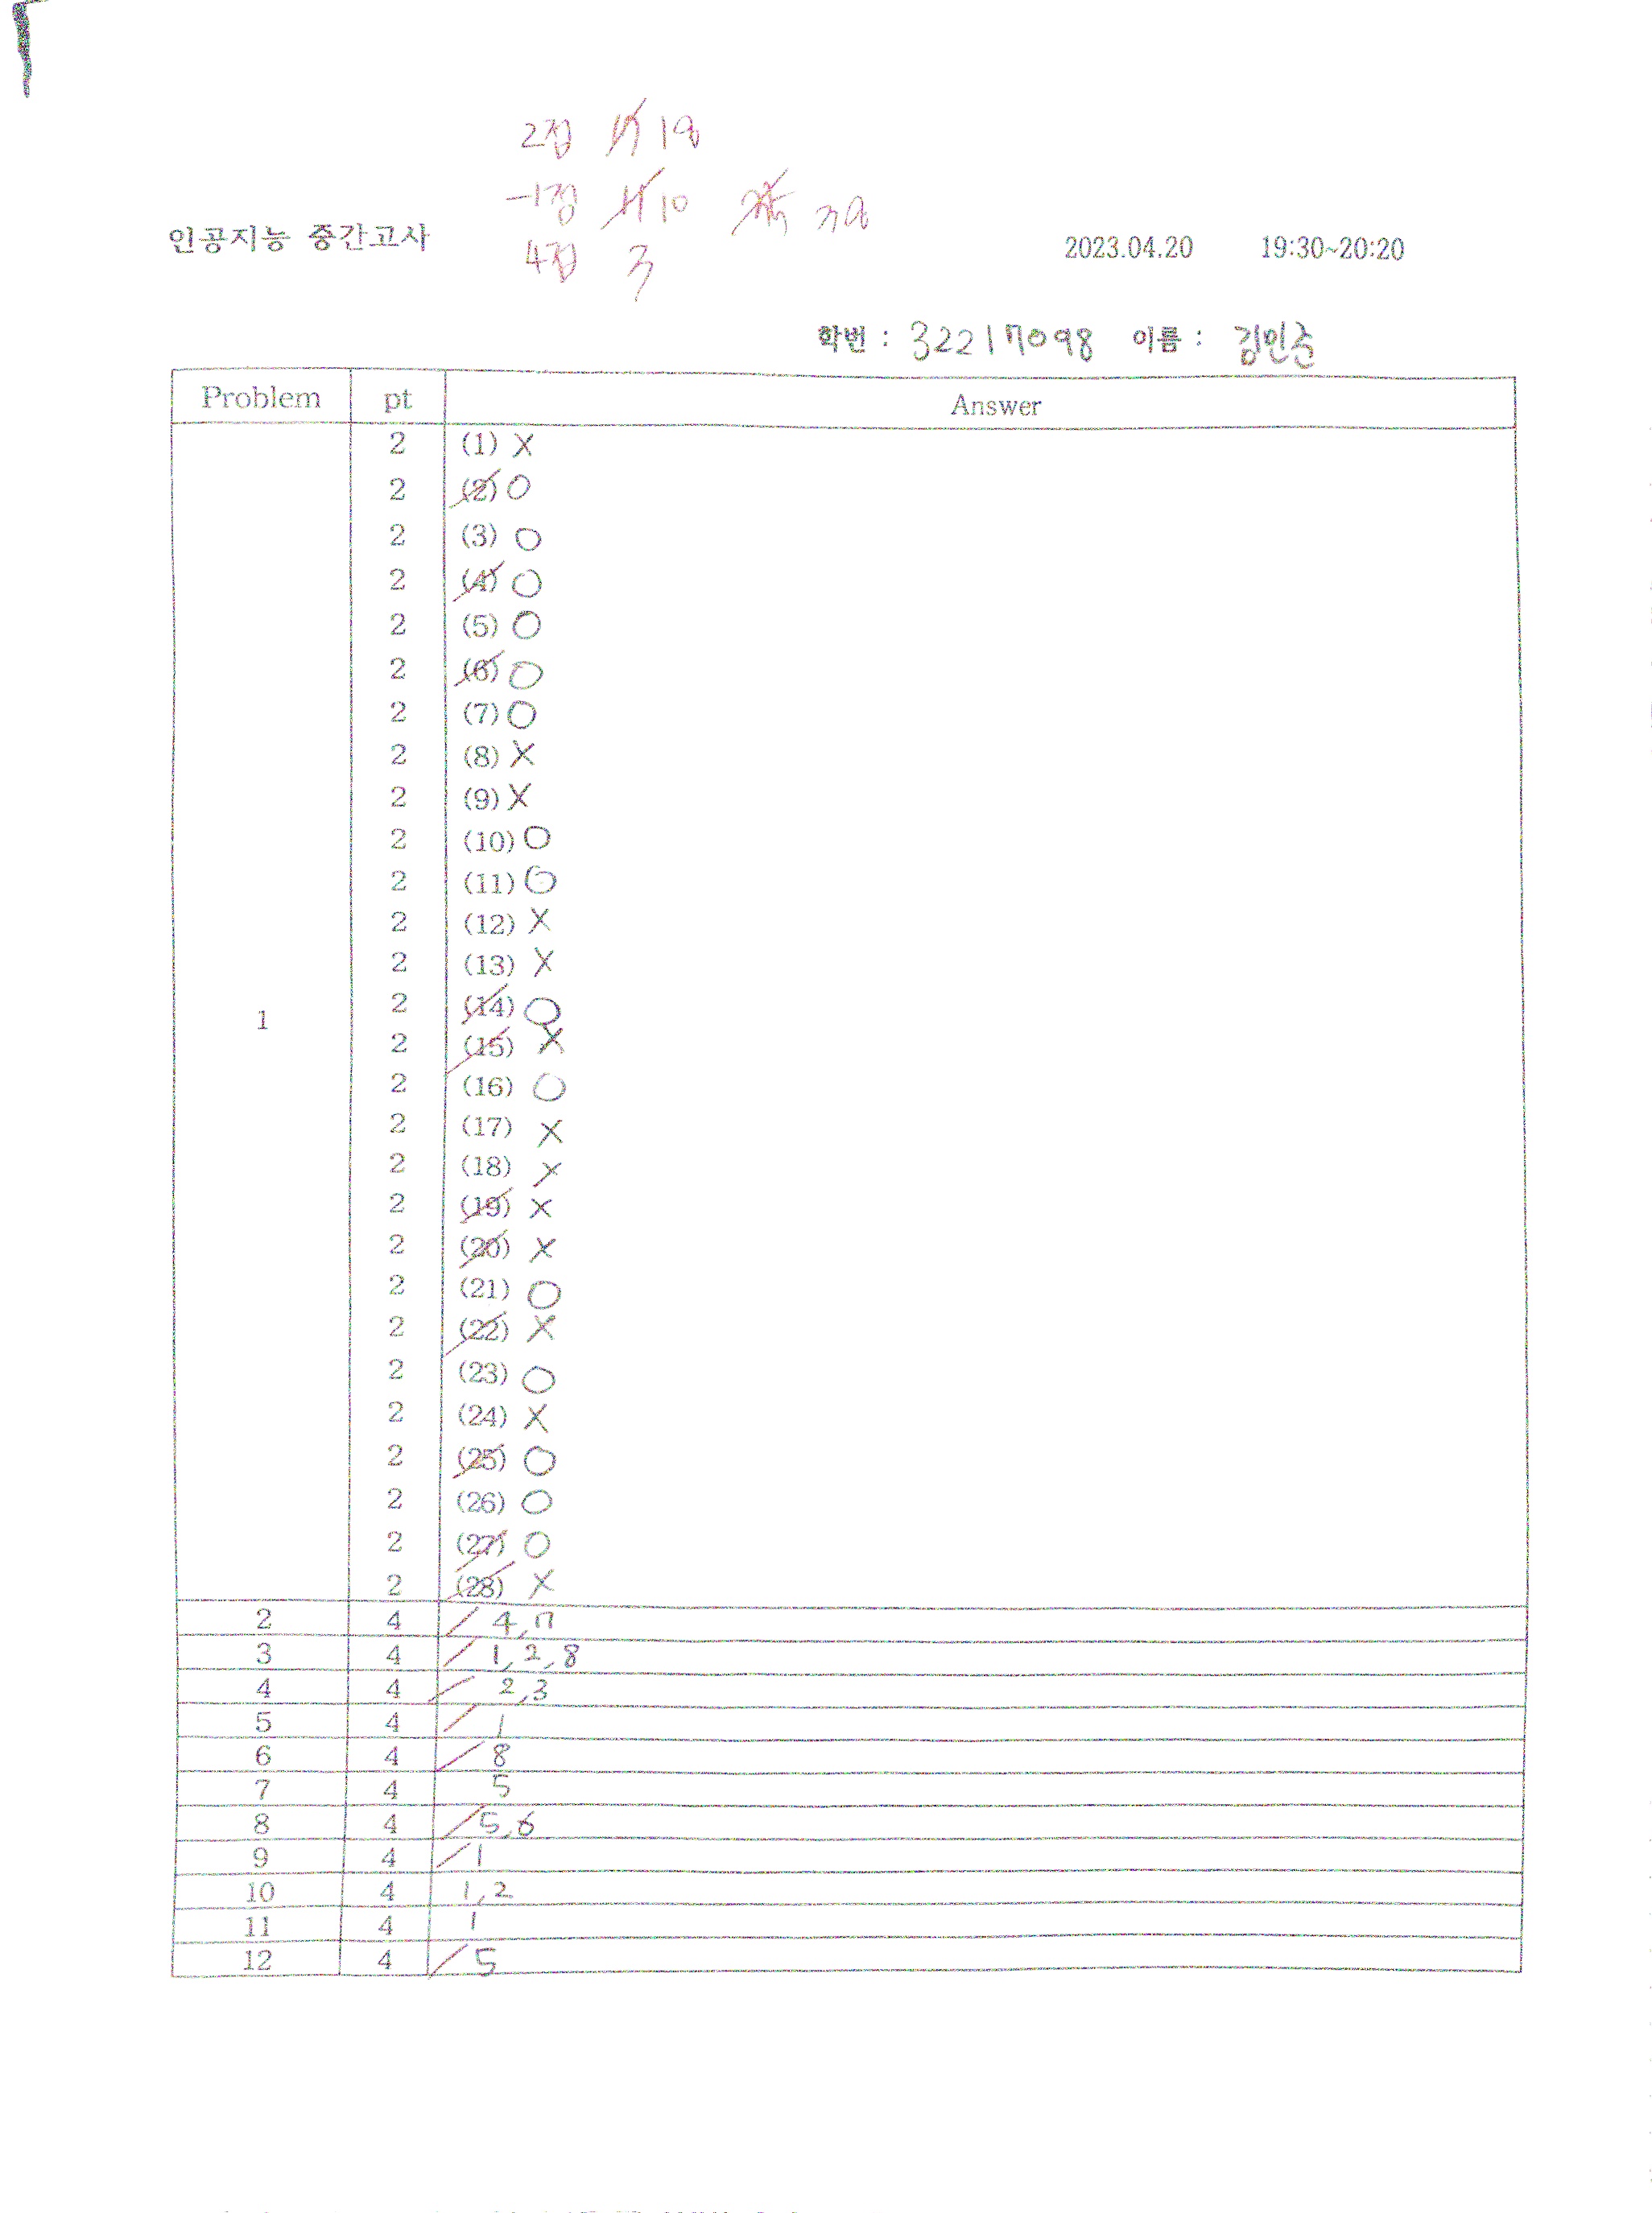 2점 17 18
-1점 11 10 38
4점 3
인공지능 중간고사
2023.04.20 19:30~20:20
학번 : 32217098 이름 : 김민승
Problem pt Answer
1
2 (1) X
2 (2) O
2 (3) O
2 (4) O
2 (5) O
2 (6) O
2 (7) O
2 (8) X
2 (9) X
2 (10) O
2 (11) O
2 (12) X
2 (13) X
2 (14) O
2 (15) X
2 (16) O
2 (17) X
2 (18) X
2 (19) X
2 (20) X
2 (21) O
2 (22) X
2 (23) O
2 (24) X
2 (25) O
2 (26) O
2 (27) O
2 (28) X
2 4 4, 7
3 4 1, 2, 8
4 4 2, 3
5 4 1
6 4 8
7 4 5
8 4 5, 6
9 4 1
10 4 1, 2
11 4 1
12 4 5